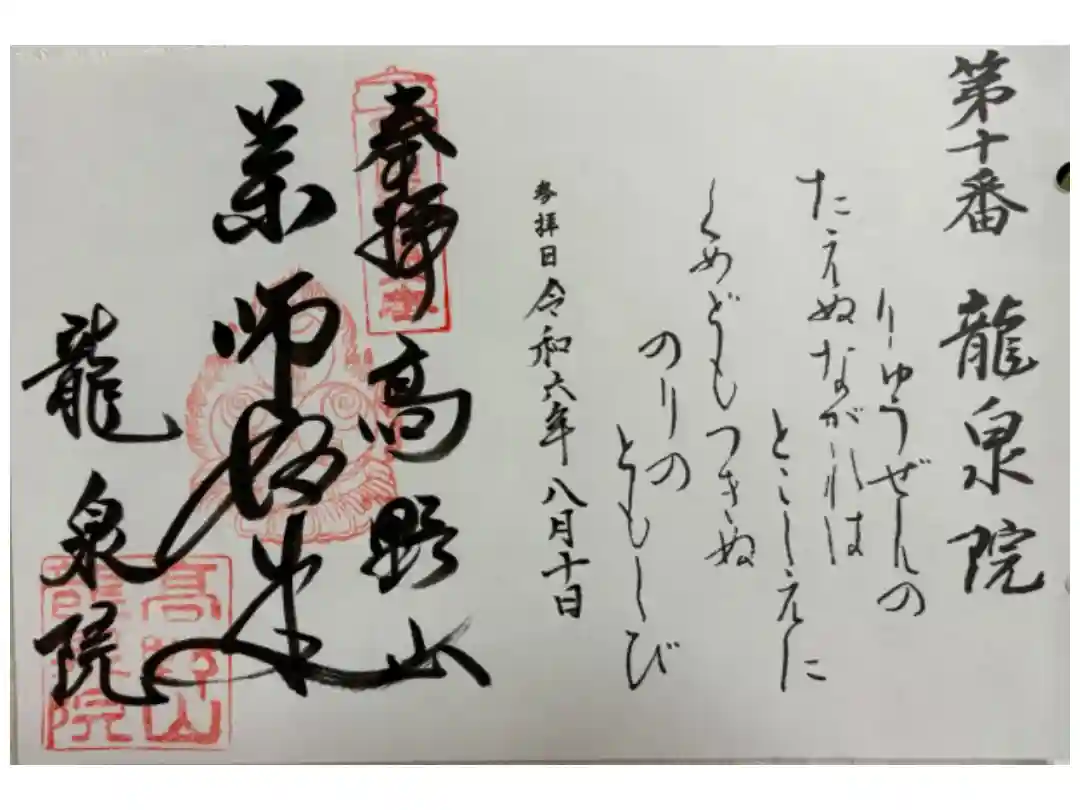 第十番 龍泉院
りゅうぜんの
たえぬながれは
とこしえに
くめどもつきぬ
のりの
ともしび
参拝日 令和六年 八月十日
奉拝 高野山
薬師如来
龍泉院
高野山
龍泉院